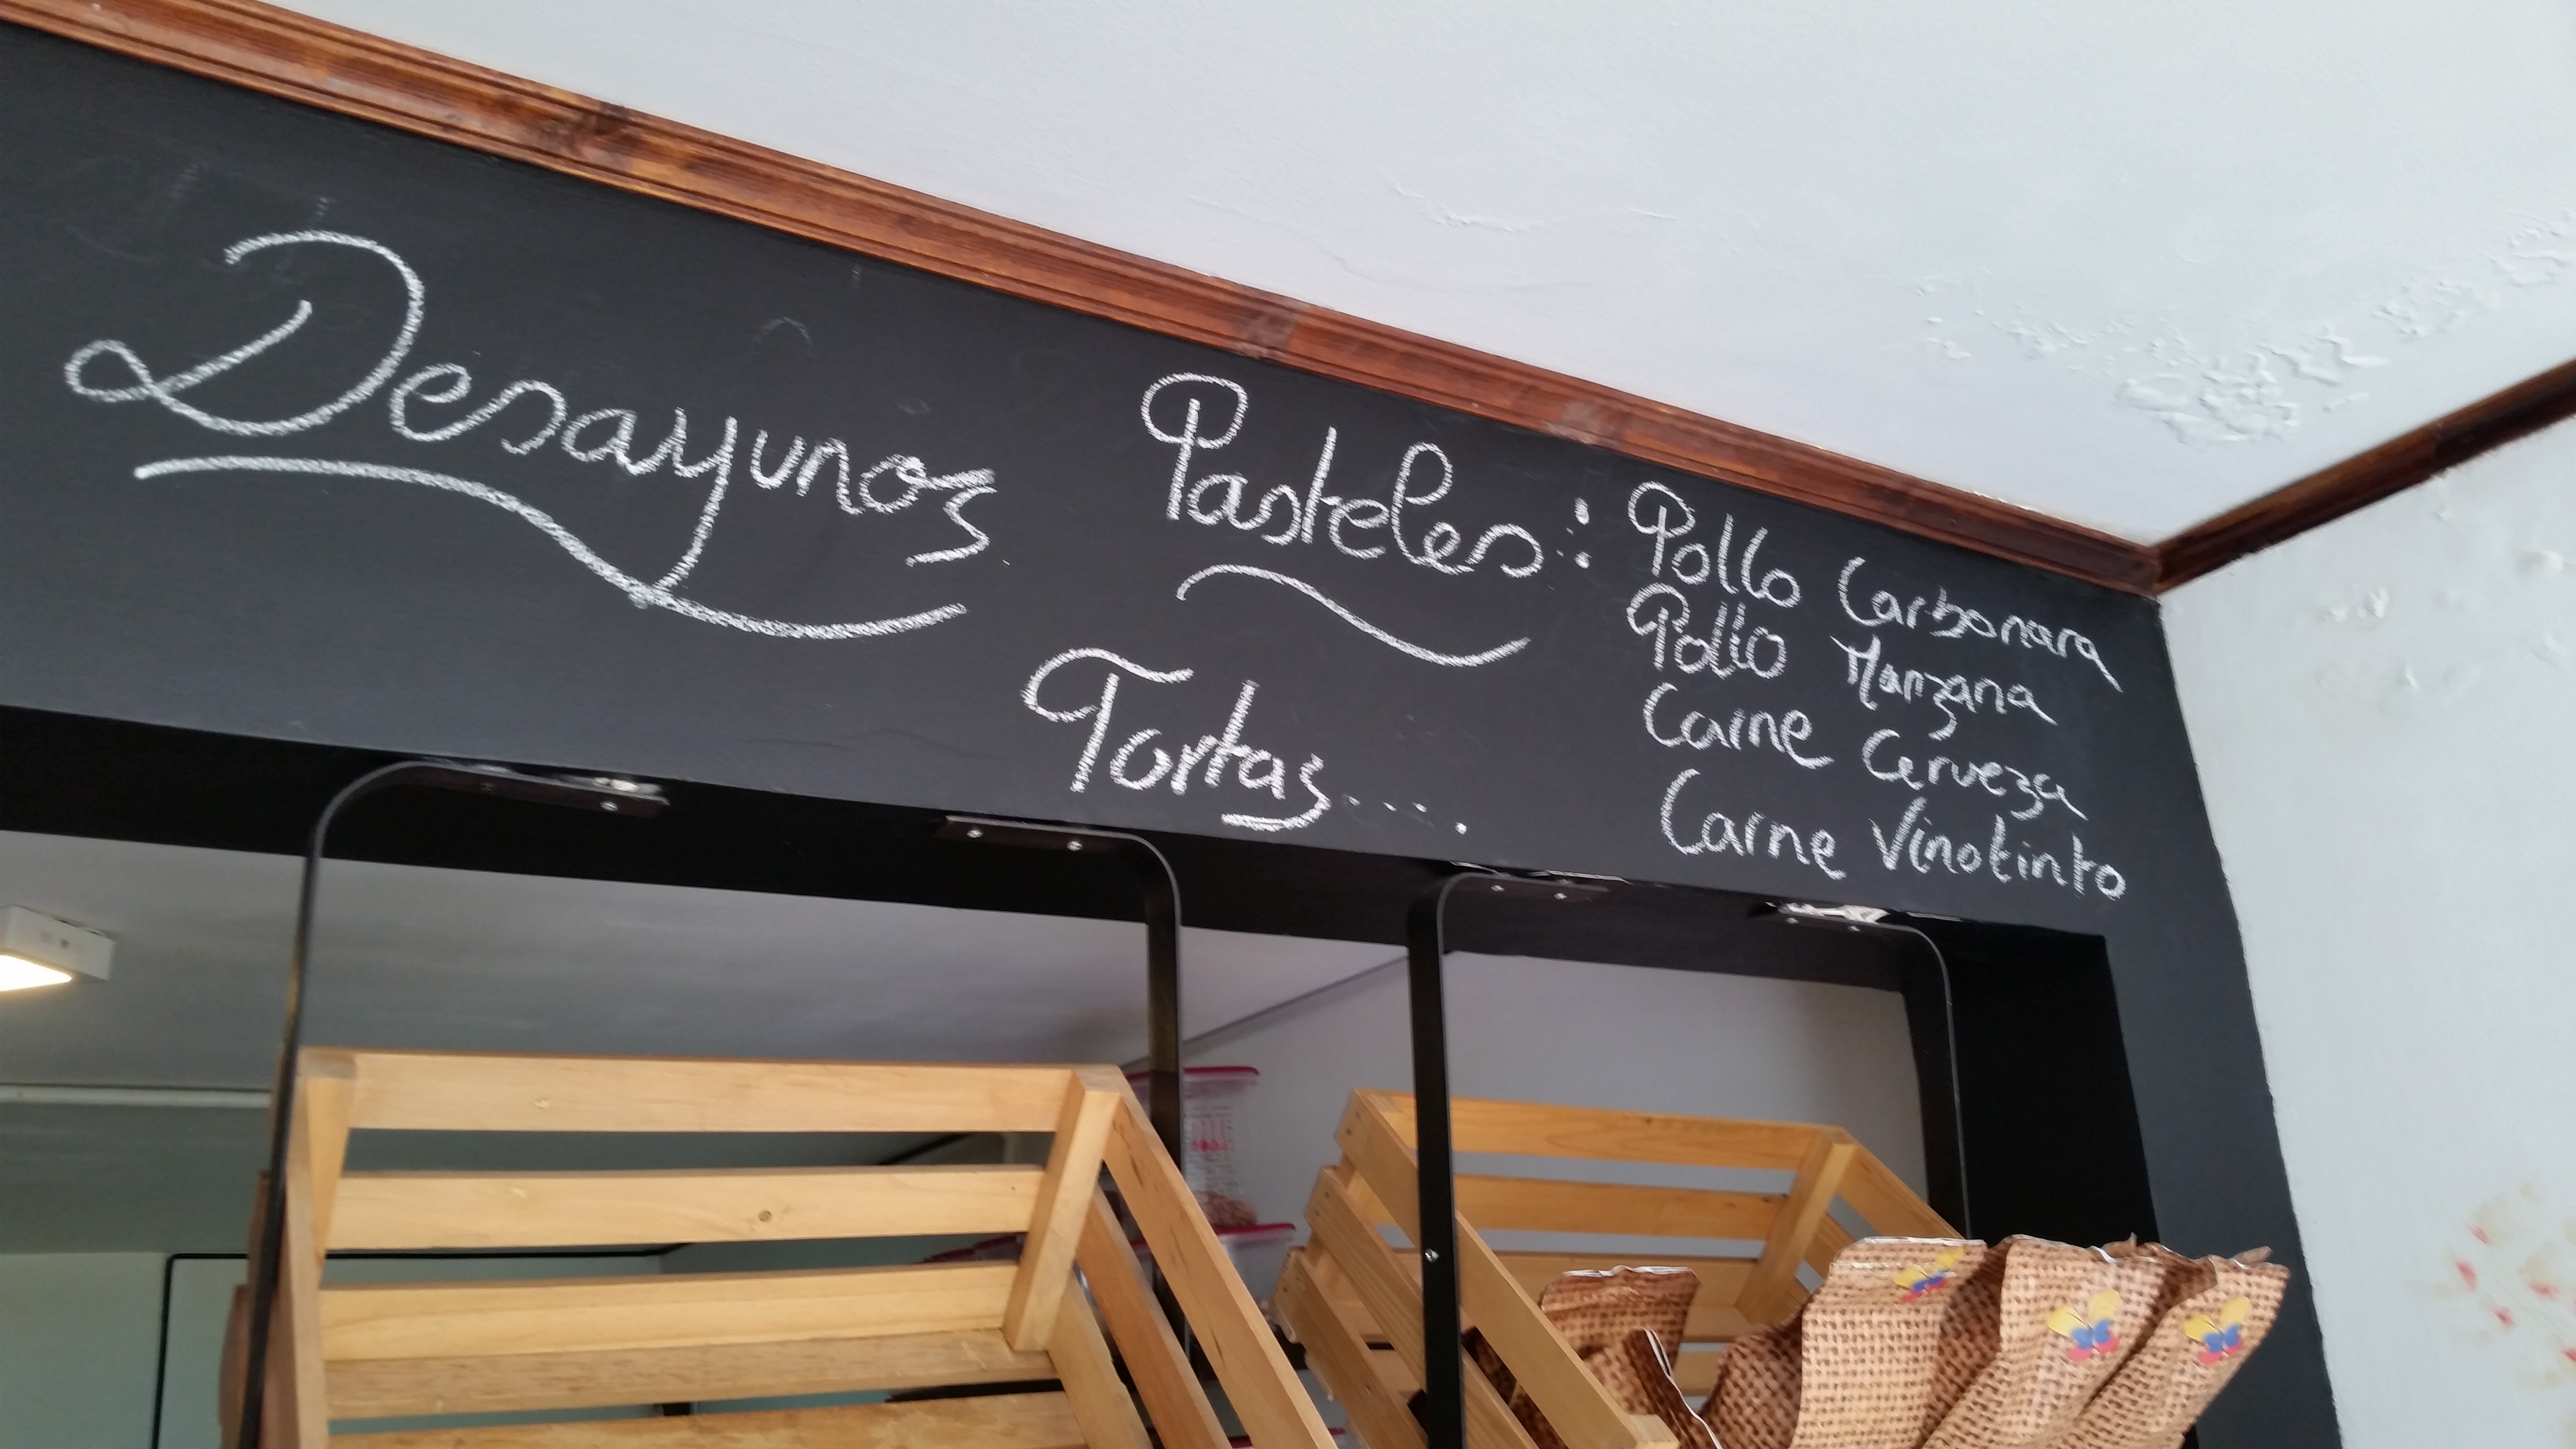 Desayunos
Pasteles:
Pollo Carbonara
Pollo Manzana
Carne Cerveza
Carne Vinotinto
Tortas....